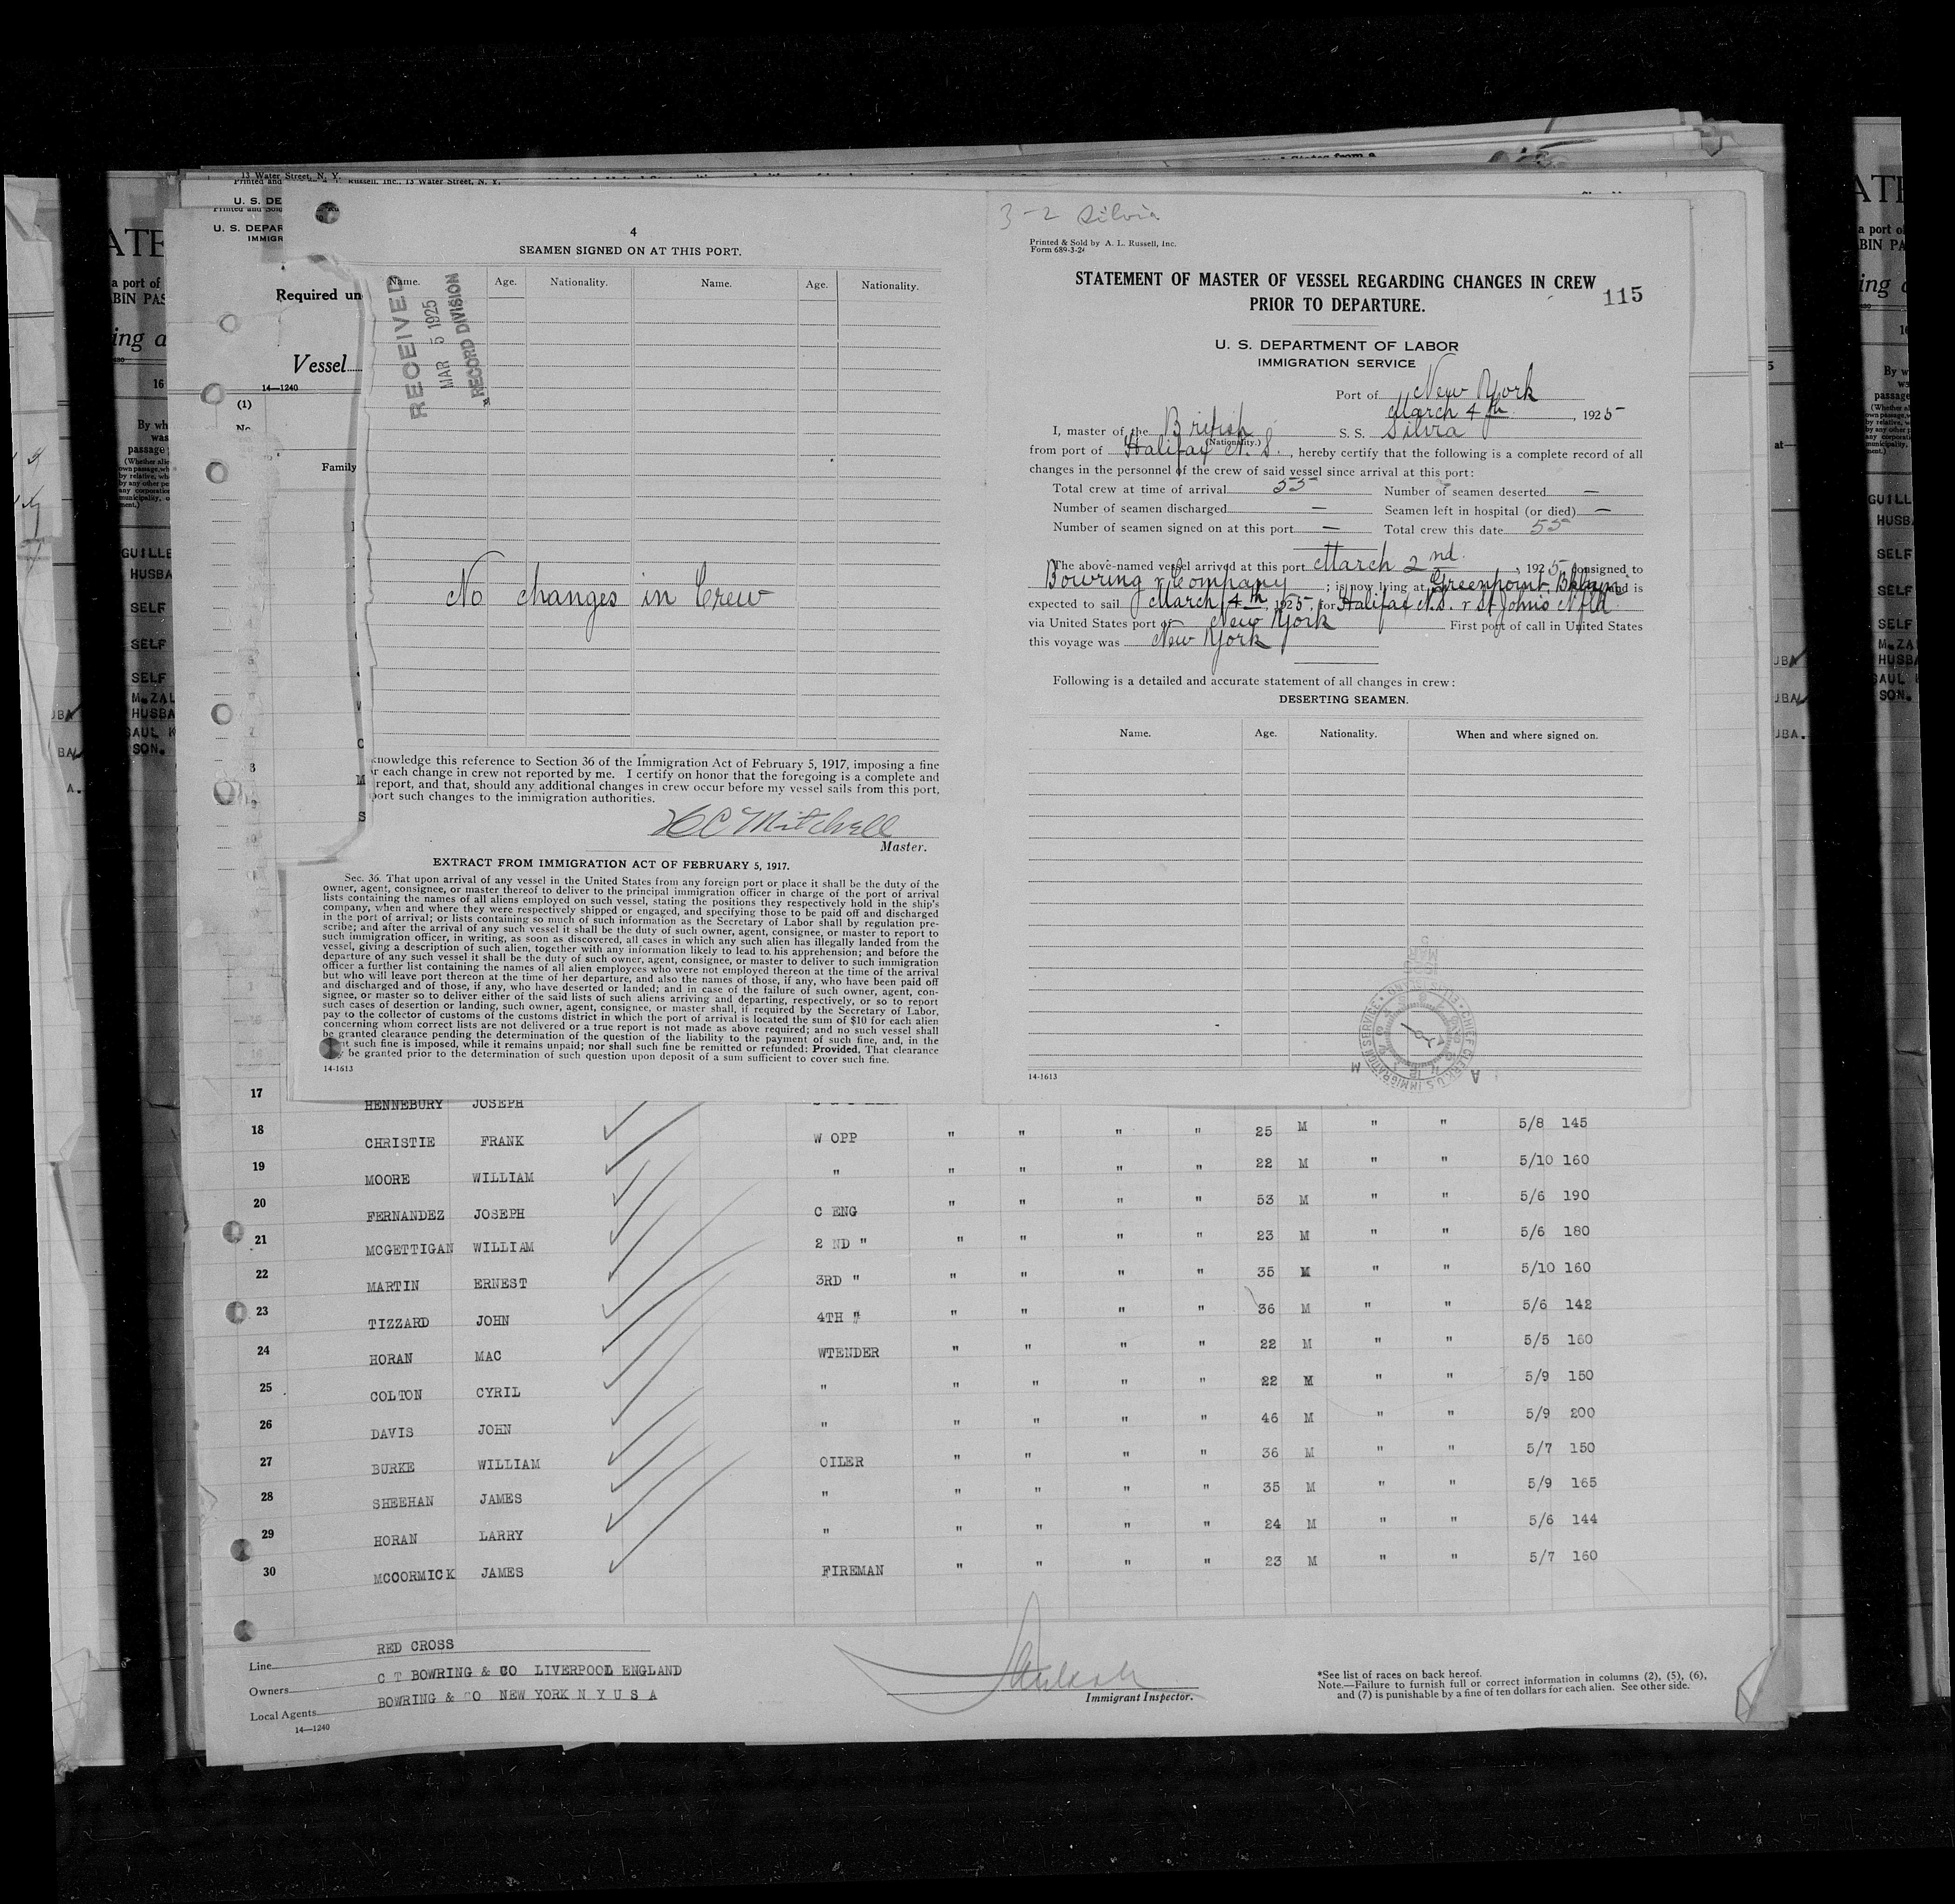 13 Water Street, N. Y.
Printed and
Russell, Inc., 13 Water Street, N. Y.
U. S. DE
Printed and Sold
U. S. DEPAR
IMMIGR
Required un
Vessel
14—1240
(1)
No.
Family
4
SEAMEN SIGNED ON AT THIS PORT.
Name. Age. Nationality. Name. Age. Nationality.
RECEIVED
MAR 5 1925
RECORD DIVISION
No changes in Crew
knowledge this reference to Section 36 of the Immigration Act of February 5, 1917, imposing a fine
r each change in crew not reported by me. I certify on honor that the foregoing is a complete and
report, and that, should any additional changes in crew occur before my vessel sails from this port,
port such changes to the immigration authorities.
H C Mitchell
Master.
EXTRACT FROM IMMIGRATION ACT OF FEBRUARY 5, 1917.
Sec. 36. That upon arrival of any vessel in the United States from any foreign port or place it shall be the duty of the
owner, agent, consignee, or master thereof to deliver to the principal immigration officer in charge of the port of arrival
lists containing the names of all aliens employed on such vessel, stating the positions they respectively hold in the ship's
company, when and where they were respectively shipped or engaged, and specifying those to be paid off and discharged
in the port of arrival; or lists containing so much of such information as the Secretary of Labor shall by regulation pre-
scribe; and after the arrival of any such vessel it shall be the duty of such owner, agent, consignee, or master to report to
such immigration officer, in writing, as soon as discovered, all cases in which any such alien has illegally landed from the
vessel, giving a description of such alien, together with any information likely to lead to his apprehension; and before the
departure of any such vessel it shall be the duty of such owner, agent, consignee, or master to deliver to such immigration
officer a further list containing the names of all alien employees who were not employed thereon at the time of the arrival
but who will leave port thereon at the time of her departure, and also the names of those, if any, who have been paid off
and discharged and of those, if any, who have deserted or landed; and in case of the failure of such owner, agent, con-
signee, or master so to deliver either of the said lists of such aliens arriving and departing, respectively, or so to report
such cases of desertion or landing, such owner, agent, consignee, or master shall, if required by the Secretary of Labor,
pay to the collector of customs of the customs district in which the port of arrival is located the sum of $10 for each alien
concerning whom correct lists are not delivered or a true report is not made as above required; and no such vessel shall
be granted clearance pending the determination of the question of the liability to the payment of such fine, and, in the
nt such fine is imposed, while it remains unpaid; nor shall such fine be remitted or refunded: Provided, That clearance
y be granted prior to the determination of such question upon deposit of a sum sufficient to cover such fine.
14-1613
3-2 Silvia
Printed & Sold by A. L. Russell, Inc.
Form 689-3-24
STATEMENT OF MASTER OF VESSEL REGARDING CHANGES IN CREW
PRIOR TO DEPARTURE.
115
U. S. DEPARTMENT OF LABOR
IMMIGRATION SERVICE
Port of New York
March 4th, 1925
I, master of the British S. S. Silvia
(Nationality.)
from port of Halifax N. S., hereby certify that the following is a complete record of all
changes in the personnel of the crew of said vessel since arrival at this port:
Total crew at time of arrival 55 Number of seamen deserted —
Number of seamen discharged — Seamen left in hospital (or died) —
Number of seamen signed on at this port — Total crew this date 55
The above-named vessel arrived at this port March 2nd, 1925, consigned to
Bowring & Company; is now lying at Greenpoint, Bklyn and is
expected to sail March 4th, 1925, for Halifax N.S. & St Johns Nfld
via United States port of New York First port of call in United States
this voyage was New York
Following is a detailed and accurate statement of all changes in crew:
DESERTING SEAMEN.
Name. Age. Nationality. When and where signed on.
CHIEF CLERK U.S. IMMIGRATION SERVICE • ELLIS ISLAND
14-1613
17 HENNEBURY JOSEPH
18 CHRISTIE FRANK W OPP " " " " 25 M " " 5/8 145
19 MOORE WILLIAM " " " " " 22 M " " 5/10 160
20 FERNANDEZ JOSEPH C ENG " " " " 53 M " " 5/6 190
21 MCGETTIGAN WILLIAM 2 ND " " " " " 23 M " " 5/6 180
22 MARTIN ERNEST 3RD " " " " " 35 M " " 5/10 160
23 TIZZARD JOHN 4TH " " " " " 36 M " " 5/6 142
24 HORAN MAC WTENDER " " " " 22 M " " 5/5 160
25 COLTON CYRIL " " " " " 22 M " " 5/9 150
26 DAVIS JOHN " " " " " 46 M " " 5/9 200
27 BURKE WILLIAM OILER " " " " 36 M " " 5/7 150
28 SHEEHAN JAMES " " " " " 35 M " " 5/9 165
29 HORAN LARRY " " " " " 24 M " " 5/6 144
30 MCCORMICK JAMES FIREMAN " " " " 23 M " " 5/7 160
Line RED CROSS
Owners C T BOWRING & CO LIVERPOOL ENGLAND
Local Agents BOWRING & CO NEW YORK N Y U S A
14—1240
Immigrant Inspector.
*See list of races on back hereof.
Note.—Failure to furnish full or correct information in columns (2), (5), (6),
and (7) is punishable by a fine of ten dollars for each alien. See other side.